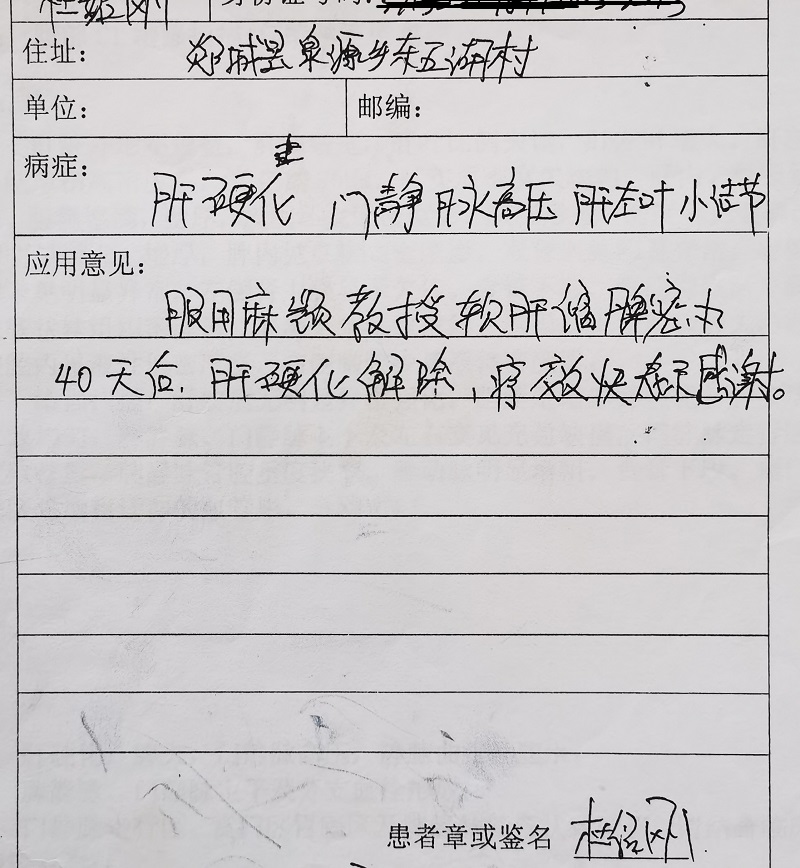 住址： 郯城县泉源乡东五湖村
单位： 邮编：
病症：
肝硬化 门静脉高压 肝左叶小结节
应用意见：
服用麻颖教授软肝缩脾蜜丸
40天后，肝硬化解除，疗效快 感谢。
患者章或签名 杜绍刚